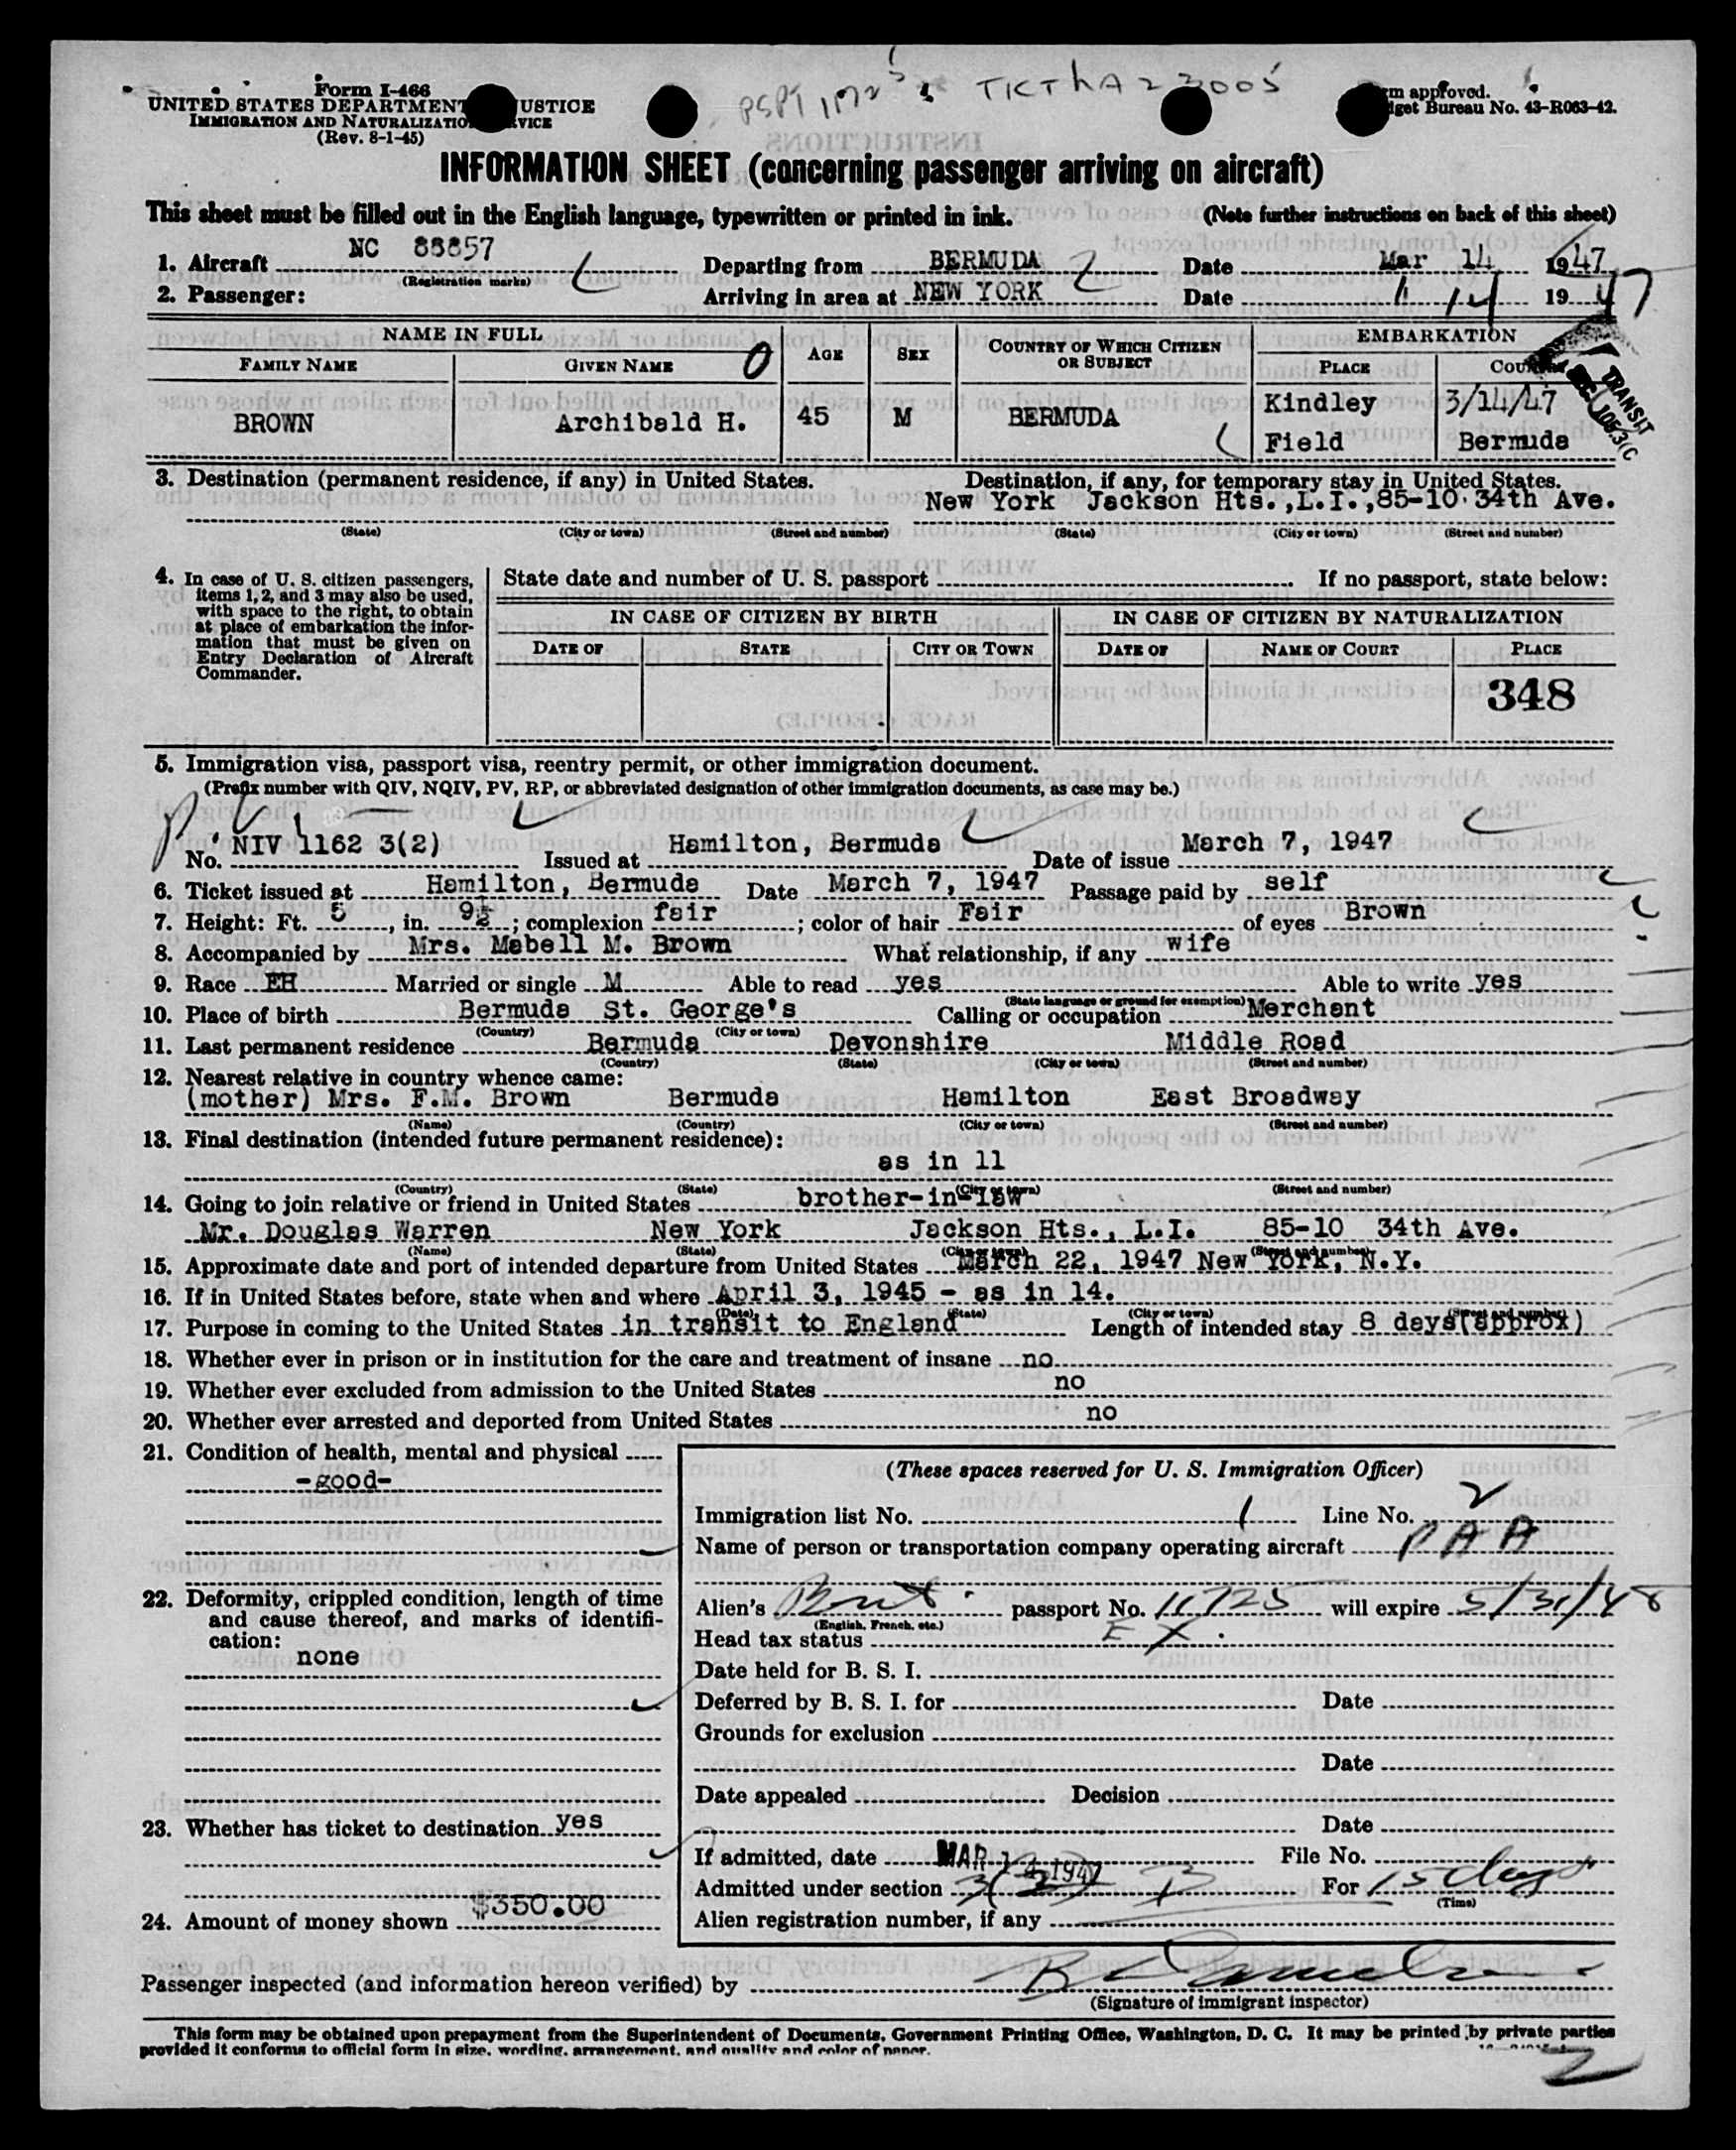 Form I-466
UNITED STATES DEPARTMENT USTICE
IMMIGRATION AND NATURALIZATIO VICE
(Rev. 8-1-45)
TKT
rm approved.
dget Bureau No. 43-R063-42.
INFORMATION SHEET (concerning passenger arriving on aircraft)
This sheet must be filled out in the English language, typewritten or printed in ink. (Note further instructions on back of this sheet)
1. Aircraft NC 88857 Departing from BERMUDA Date Mar 14 1947
(Registration marks)
2. Passenger: Arriving in area at NEW YORK Date 14 1947
NAME IN FULL AGE SEX COUNTRY OF WHICH CITIZEN OR SUBJECT EMBARKATION
FAMILY NAME GIVEN NAME O PLACE COUN
TRANSIT
SEC 105.3(C
BROWN Archibald H. 45 M BERMUDA Kindley 3/14/47
Field Bermuda
3. Destination (permanent residence, if any) in United States. Destination, if any, for temporary stay in United States.
New York Jackson Hts.,L.I.,85-10 34th Ave.
(State) (City or town) (Street and number) (State) (City or town) (Street and number)
4. In case of U. S. citizen passengers, items 1, 2, and 3 may also be used, with space to the right, to obtain at place of embarkation the information that must be given on Entry Declaration of Aircraft Commander.
State date and number of U. S. passport If no passport, state below:
IN CASE OF CITIZEN BY BIRTH IN CASE OF CITIZEN BY NATURALIZATION
DATE OF STATE CITY OR TOWN DATE OF NAME OF COURT PLACE
348
5. Immigration visa, passport visa, reentry permit, or other immigration document.
(Prefix number with QIV, NQIV, PV, RP, or abbreviated designation of other immigration documents, as case may be.)
No. NIV 1162 3(2) Issued at Hamilton, Bermuda Date of issue March 7, 1947
6. Ticket issued at Hamilton, Bermuda Date March 7, 1947 Passage paid by self
7. Height: Ft. 5, in. 9½; complexion fair; color of hair Fair of eyes Brown
8. Accompanied by Mrs. Mabell M. Brown What relationship, if any wife
9. Race EH Married or single M Able to read yes Able to write yes
(State language or ground for exemption)
10. Place of birth Bermuda St. George's Calling or occupation Merchant
(Country) (City or town)
11. Last permanent residence Bermuda Devonshire Middle Road
(Country) (State) (City or town) (Street and number)
12. Nearest relative in country whence came:
(mother) Mrs. F.M. Brown Bermuda Hamilton East Broadway
(Name) (Country) (City or town) (Street and number)
13. Final destination (intended future permanent residence):
as in 11
(Country) (State) (City or town) (Street and number)
14. Going to join relative or friend in United States brother-in-law
Mr. Douglas Warren New York Jackson Hts., L.I. 85-10 34th Ave.
(Name) (State) (City or town) (Street and number)
15. Approximate date and port of intended departure from United States March 22, 1947 New York, N.Y.
16. If in United States before, state when and where April 3, 1945 - as in 14.
(Date) (State) (City or town) (Street and number)
17. Purpose in coming to the United States in transit to England Length of intended stay 8 days(approx)
18. Whether ever in prison or in institution for the care and treatment of insane no
19. Whether ever excluded from admission to the United States no
20. Whether ever arrested and deported from United States no
21. Condition of health, mental and physical
-good-
22. Deformity, crippled condition, length of time and cause thereof, and marks of identification:
none
23. Whether has ticket to destination yes
24. Amount of money shown $350.00
(These spaces reserved for U. S. Immigration Officer)
Immigration list No. 1 Line No. 2
Name of person or transportation company operating aircraft PAA
Alien's Brit passport No. 11725 will expire 5/31/48
(English, French, etc.)
Head tax status EX.
Date held for B. S. I.
Deferred by B. S. I. for Date
Grounds for exclusion
Date
Date appealed Decision
Date
If admitted, date MAR 14 1947 File No.
Admitted under section 3(2) For 15 days
(Time)
Alien registration number, if any
Passenger inspected (and information hereon verified) by
(Signature of immigrant inspector)
This form may be obtained upon prepayment from the Superintendent of Documents, Government Printing Office, Washington, D. C. It may be printed by private parties
provided it conforms to official form in size, wording, arrangement, and quality and color of paper.
2